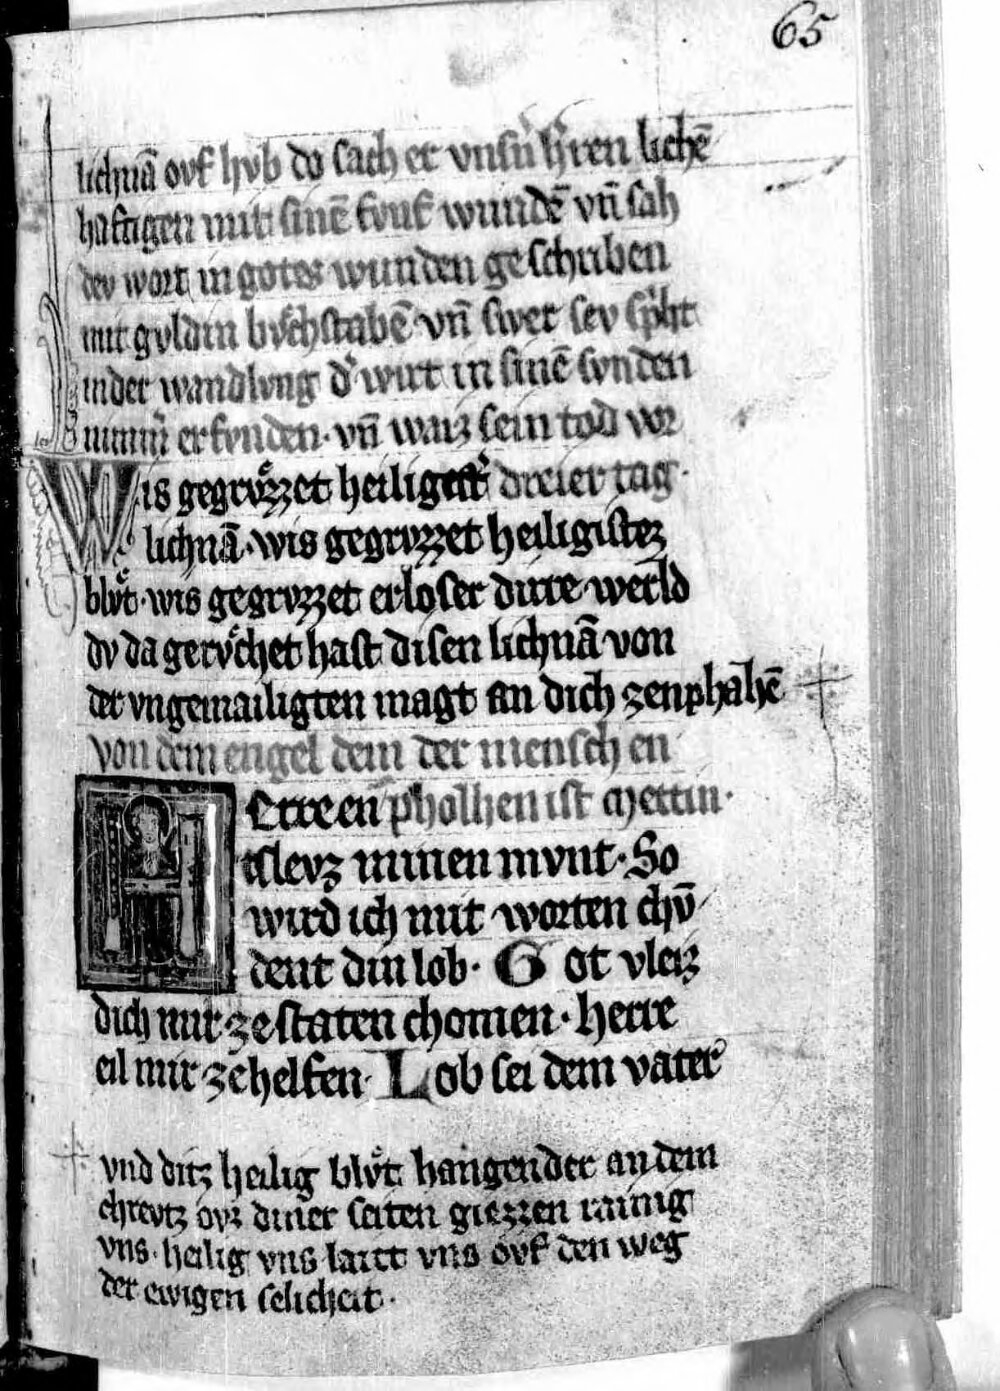 65
lichnā ovf hvb do sach er vnsn̄ h̓ren lichē
haftigen mit sinē fvnf wundē vn̄ sah
dev wort in gotes wunden geschriben
mit gvldin bv̊chstabē vn̄ swer sev sp̓ht
in der wandlvng d̓ wirt in sinē svnden
nimm̓ erfvnden · vn̄ waiz sein tod vor
Wis gegrv̊zzet heiligist̓ dreier tag ·
lichnā · wis gegrvzzet heiligistez
blv̊t · wis gegrvzzet erloser dirre werld
dv da gerv̊chet hast disen lichnā von
der vngemailigten magt an dich zenphahē
von dem engel dem der menschen
erre en pholhen ist Mettin ·
Sleuz minen mvnt · So
wird ich mit worten chv̄
dent din lob · Got vleiz
dich mir ze staten chomen · herre
eil mir ze helfen · Lob sei dem vater
vnd ditz heilig blv̊t hangender an dem
chrevtz ovz diner seiten giezzen rainig
vns · heilig vns lait vns ovf den weg
der ewigen selicheit ·